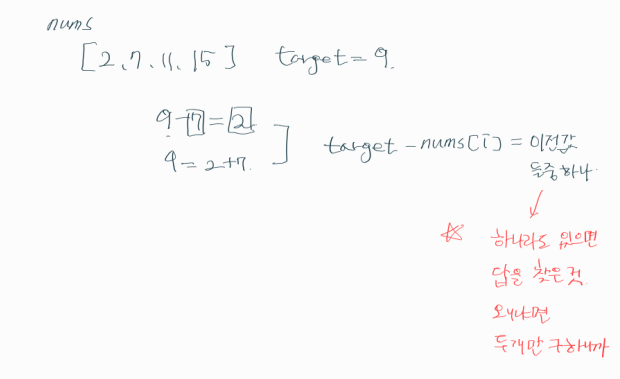 nums
[2, 7, 11, 15] target = 9.
9-7=2
9=2+7.
target - nums[i] = 이전값
들중하나
하나라도 있으면
답을 찾은것.
왜냐면
두개만 구하니까